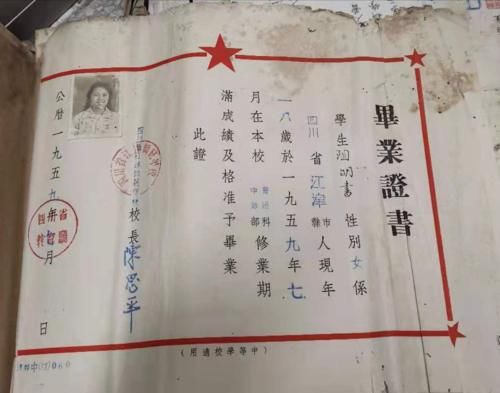 畢業證書
學生陶明書 性別女係
四川省江津市縣人現年
一八歲於一九五九年七
月在本校普通科中師部修業期
滿成績及格准予畢業
此證
校長陳思平
公曆一九五九年七月 日
(中等學校適用)